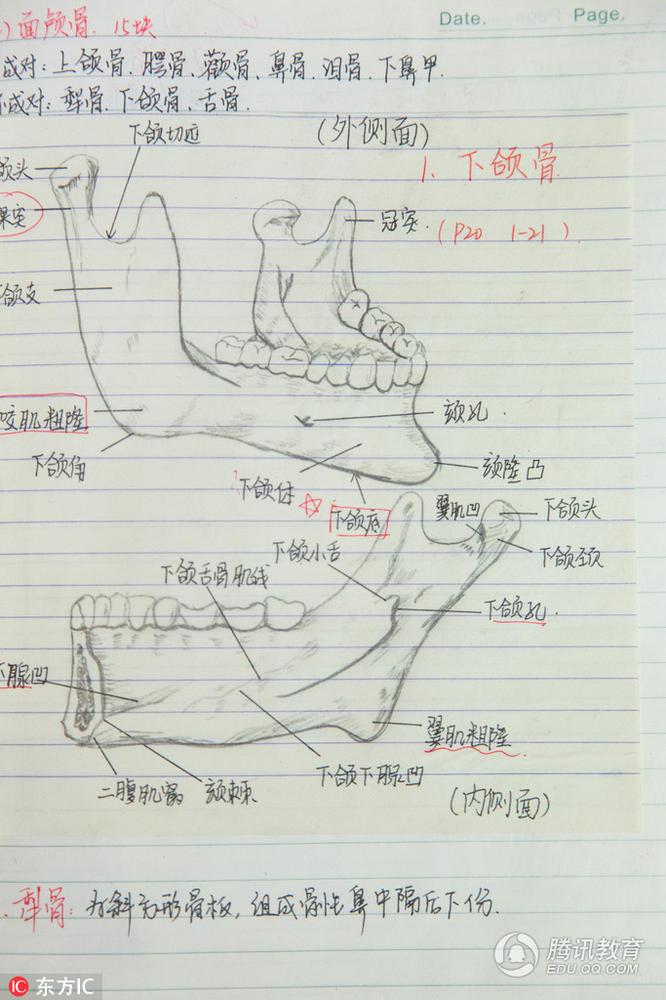 Date. Page.
) 面颅骨. 15块
成对: 上颌骨. 腭骨、颧骨、鼻骨. 泪骨. 下鼻甲.
成对: 犁骨. 下颌骨、舌骨.
下颌切迹
(外侧面)
颌头
1. 下颌骨
髁突
冠突.
(P20 1-21).
颌支
咬肌粗隆
颏孔.
下颌角
下颌体
颏隆凸
下颌底
翼肌凹
下颌头
下颌小舌
下颌颈
下颌舌骨肌线
下颌孔.
下腺凹
翼肌粗隆
二腹肌窝
颏棘
下颌下腺凹
(内侧面)
. 犁骨: 为斜方形骨板, 组成骨性鼻中隔后下份.
腾讯教育
EDU.QQ.COM
东方IC